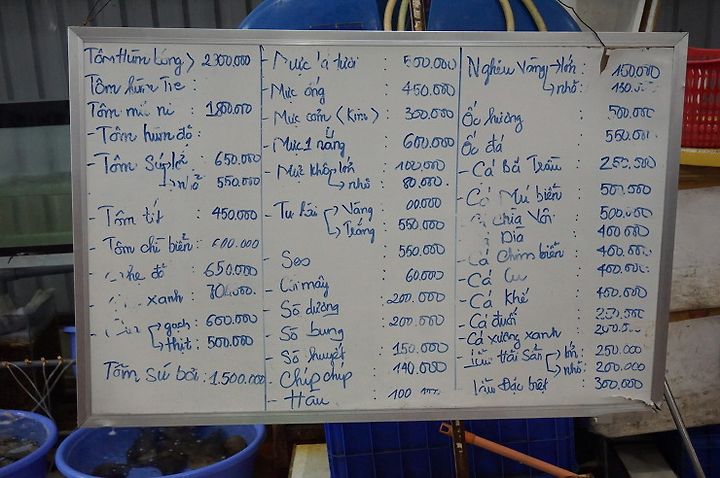 Tôm Hùm bông > 2300.000
Tôm hùm Tre :
Tôm mũ ni : 1.800.000
- Tôm hùm đỏ :
- Tôm Sú lớ : 650.000
nhỏ : 550.000
- Tôm tít : 450.000
- Tôm chì biển : 600.000
đỏ : 650.000
xanh :
gạch : 600.000
thịt : 500.000
Tôm sú bơi : 1.500.000
- Mực lá tươi : 500.000
- Mực ống : 450.000
- Mực cơm < Kim > : 300.000
- Mực 1 nắng : 600.000
- Mực khô lớn : 100.000
nhỏ : 80.000
- Tu hài Vàng : 00.000
Trắng : 550.000
- Sео : 550.000
- mây : 60.000
- Sò dương : 200.000
- Sò bung : 200.000
- Sò huyết : 150.000
- Chíp chíp : 140.000
- Hàu : 100
Nghêu Vàng lớn : 150.000
nhỏ : 130.000
Ốc hương : 500.000
Ốc đá : 550.000
- Cá Bà Trầu : 250.500
- Cá Mú biển : 500.000
Chìa Vôi : 500.000
Dìa : 400.000
- Cá Chim biển : 400.000
- Cá : 400.000
- Cá khế : 400.000
- Cá đuối : 250.000
- Cá xương xanh : 200.500
- Lẩu Hải Sản lớn : 250.000
nhỏ : 200.000
Lẩu Đặc biệt : 300.000